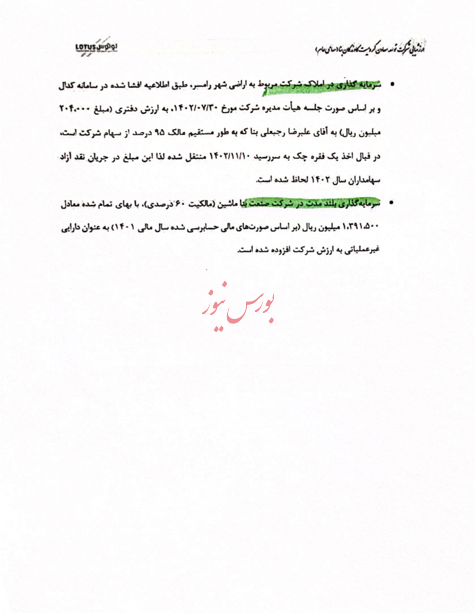 ارزشیابی شرکت توسعه معادن کرومیت کاوندگان بنا (سهامی عام)
لوتوس LOTUS
• سرمایه گذاری در املاک شرکت مربوط به اراضی شهر رامسر، طبق اطلاعیه افشا شده در سامانه کدال
و بر اساس صورت جلسه هیأت مدیره شرکت مورخ ۱۴۰۲/۰۷/۳۰، به ارزش دفتری (مبلغ ۲۰۴.۰۰۰
میلیون ریال) به آقای علیرضا رجبعلی بنا که به طور مستقیم مالک ۹۵ درصد از سهام شرکت است،
در قبال اخذ یک فقره چک به سررسید ۱۴۰۲/۱۱/۱۰ منتقل شده لذا این مبلغ در جریان نقد آزاد
سهامداران سال ۱۴۰۲ لحاظ شده است.
• سرمایه‌گذاری بلند مدت در شرکت صنعت بنا ماشین (مالکیت ۶۰ درصدی)، با بهای تمام شده معادل
۱.۳۹۱.۵۰۰ میلیون ریال (بر اساس صورت‌های مالی حسابرسی شده سال مالی ۱۴۰۱) به عنوان دارایی
غیرعملیاتی به ارزش شرکت افزوده شده است.
بورس نیوز